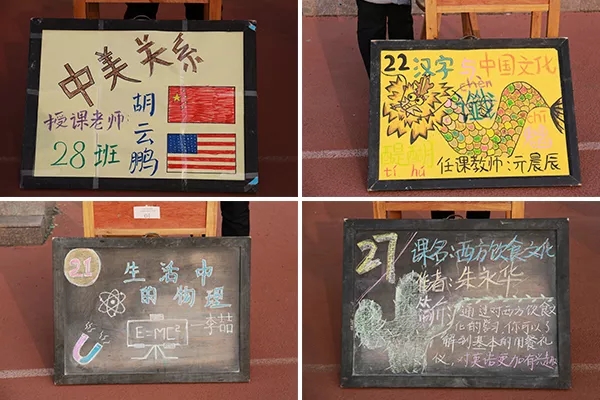 中美关系
授课老师:
胡云鹏
28班
22 汉字与中国文化
chěn
chī
醍醐
tí hú
任课教师:亓晨辰
21
生活中
的物理
—李喆
E=MC²
27
课名:西方饮食文化
作者:朱永华
简介:通过对西方饮食文
化的学习,你可以了
解到基本的用餐礼
仪,对英语更加有兴趣